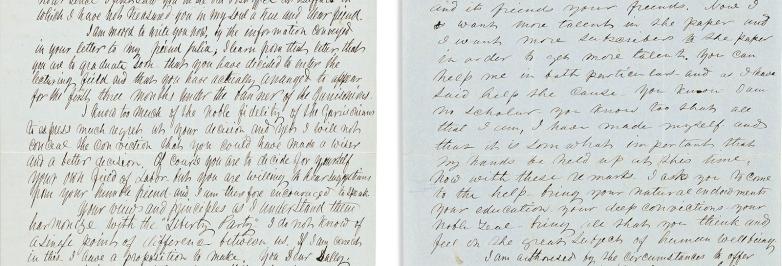 which I have not treasured you in my soul a true and dear friend.
I am moved to write you now, by the information conveyed
in your letter to my friend Julia, I learn from that letter that
you are to graduate soon that you have decided to enter the
lecturing field and that you have actually arranged to appear
for the first three months under the banner of the Garrisonians.
I know too much of the noble fidelity of the Garrisonians
to express much regret at your decision and yet I will not
conceal the conviction that you could have made a wiser
and a better decision. Of course you are to decide for yourself
your own field of Labor but you are willing to hear suggestions
from your humble friend and I am therefore encouraged to speak
Your views and principles as I understand them
harmonize with the "Liberty Party" I do not know of
a single point of difference between us. If I am correct
in this I have a proposition to make. You Dear Sally,
and its friends your friends. Now I
want more talent in the paper and
I want more subscribers to the paper
in order to get more talent. You can
help me in both particulars and as I have
said help the cause. You know I am
no scholar, you know too that all
that I am, I have made myself and
that it is som what important that
my hands be held up at this time,
now with these remarks. I ask you to come
to the help bring your natural endowments
your education, your deep convictions your
noble zeal - bring all that you think and
feel on the great subject of human wellbeing
I am authorised by the circumstances to offer